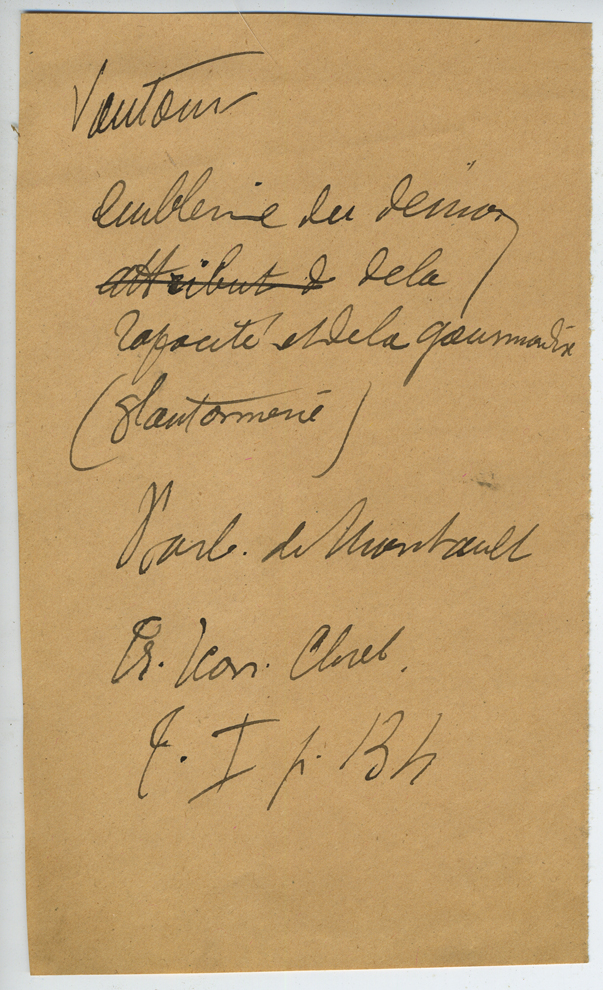 Vautour
emblème du démon,
attribut d de la
rapacité et de la gourmandise
(gloutonnerie)
Barb. de Montault
Tr. Icon. Chret.
T. I p. 134